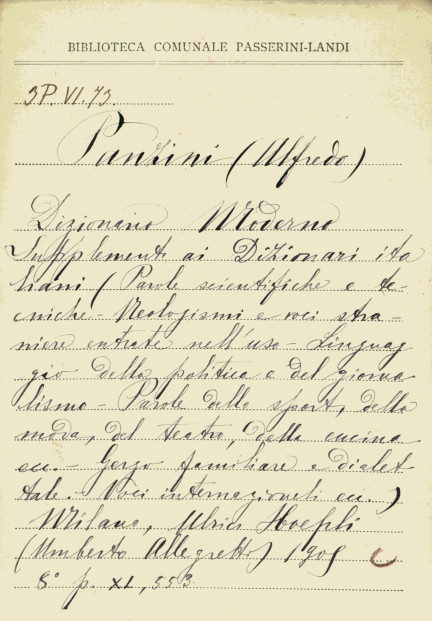 BIBLIOTECA COMUNALE PASSERINI-LANDI
3P. VI. 73.
Panzini (Alfredo)
Dizionario Moderno
Supplemento ai Dizionari ita
liani (Parole scientifiche e te-
cniche - Neologismi e voci stra-
niere entrate nell'uso - Linguag
gio della politica e del giorna
lismo - Parole dello sport, della
moda, del teatro, della cucina
ecc. - Gergo familiare e dialet-
tale. - Voci internazionali ecc.)
Milano, Ulrico Hoepli
(Umberto Allegretti) 1905
8° p. XL, 553